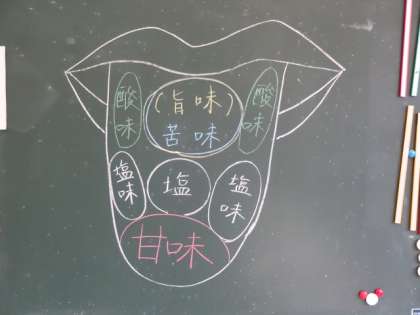 酸味
(旨味)
苦味
酸味
塩味
塩
塩味
甘味